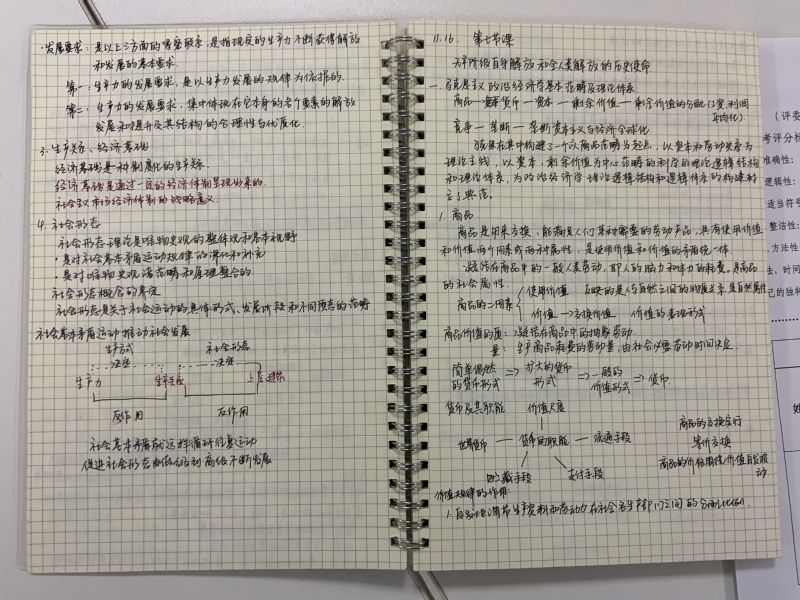 ·发展要求：是以上三方面的紧密联系，是指现实的生产力不断获得解放
和发展的基本要求.
第一：生产力的发展要求，是以生产力发展的规律为依据的.
第二：生产力的发展要求，集中体现在它本身的各个要素的解放
发展和提升及其结构的合理性与优质化.
3. 生产关系、经济基础
经济基础是一种制度化的生产关系.
经济基础是通过一定的经济体制呈现出来的.
社会主义市场经济体制的战略意义
4. 社会形态
社会形态理论是唯物史观的整体观和基本视野
·是对社会基本矛盾运动规律的深化和补充
·是对唯物史观诸范畴和原理整合的
社会形态概念的界定
社会形态是关于社会运动的具体形式、发展阶段和不同质态的范畴
社会基本矛盾运动推动社会发展
生产方式 社会形态
决定 决定
生产力 生产关系 上层建筑
反作用 反作用
社会基本矛盾就这样循环往复运动
促进社会形态由低级到高级不断发展
11.16. 第七节课
无产阶级自身解放和全人类解放的历史使命
一. 马克思主义政治经济学基本范畴及理论体系
商品 — 货币 — 资本 — 剩余价值 — 剩余价值的分配(工资，利润
平均化)
竞争 — 垄断 — 垄断资本主义与经济全球化
马克思在其中构建了一个以商品范畴为起点，以资本和劳动关系为
理论主线，以资本、剩余价值为中心范畴的科学的理论逻辑结构
和理论体系，为政治经济学理论逻辑结构和逻辑体系的构建树
立了典范.
1. 商品
商品是用来交换，能满足人们某种需要的劳动产品，具有使用价值
和价值两个因素或两种属性，是使用价值和价值的矛盾统一体.
凝结在商品中的一般人类劳动，即人的脑力和体力的耗费. 是商品
的社会属性.
商品的二因素 使用价值 反映的是人与自然之间的物质关系，是自然属性
价值 → 交换价值 价值的表现形式
商品价值的质：凝结在商品中的抽象劳动.
量：生产商品耗费的劳动量，由社会必要劳动时间决定.
简单偶然的货币形式 => 扩大的货币形式 => 一般的价值形式 => 货币.
货币及其职能 价值尺度
世界货币 — 货币的职能 — 流通手段
贮藏手段 支付手段
商品的交换实行
等价交换
商品的价格围绕价值自发波动
价值规律的作用：
1. 自发地调节生产资料和劳动力在社会各生产部门之间的分配比例.
(评委
考评分析
准确性：
逻辑性：
适当符号
整洁性：
方法性
法，时间
己的独特